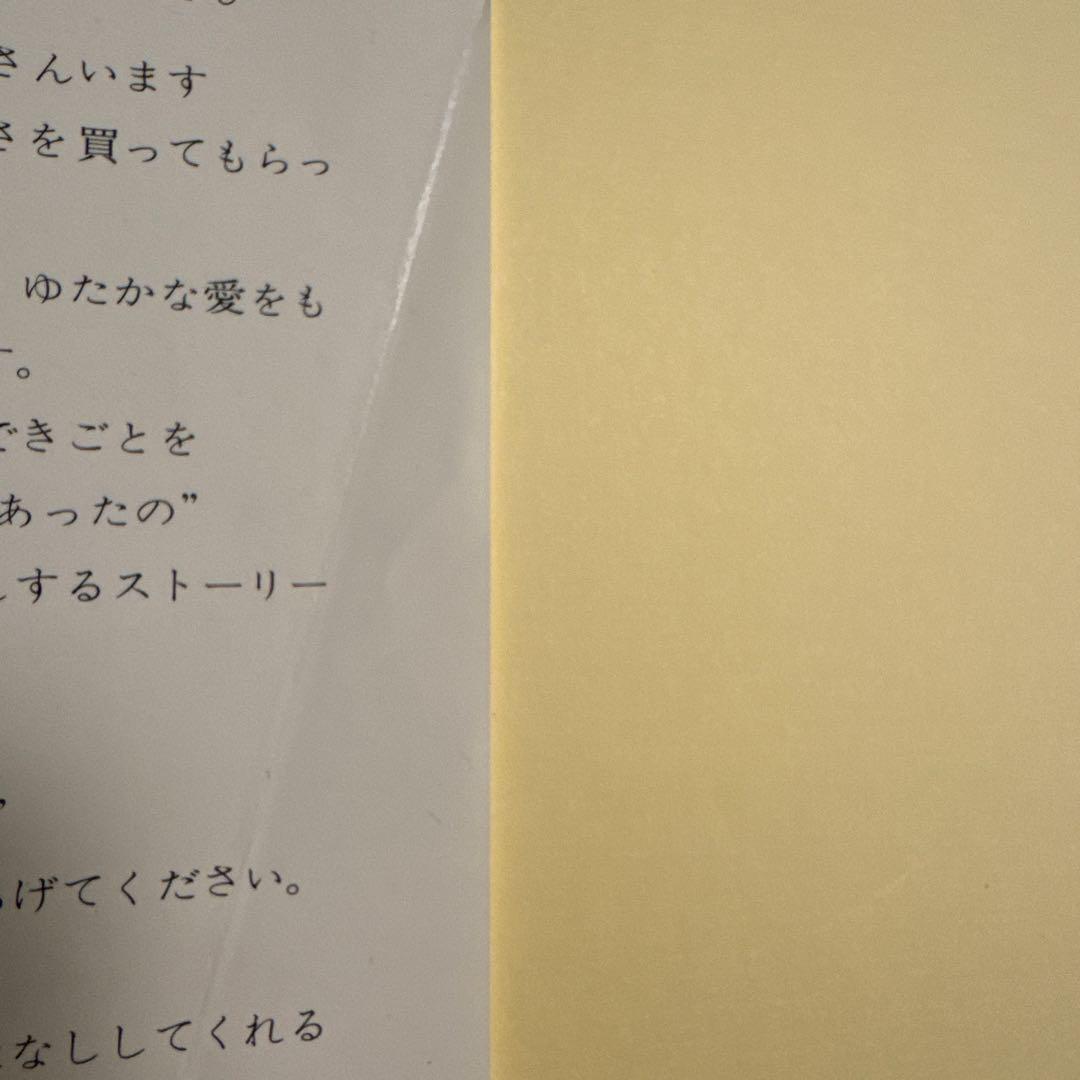 さんいます
さを買ってもらっ
ゆたかな愛をも
す。
できごとを
あったの”
するストーリー
”
げてください。
なししてくれる